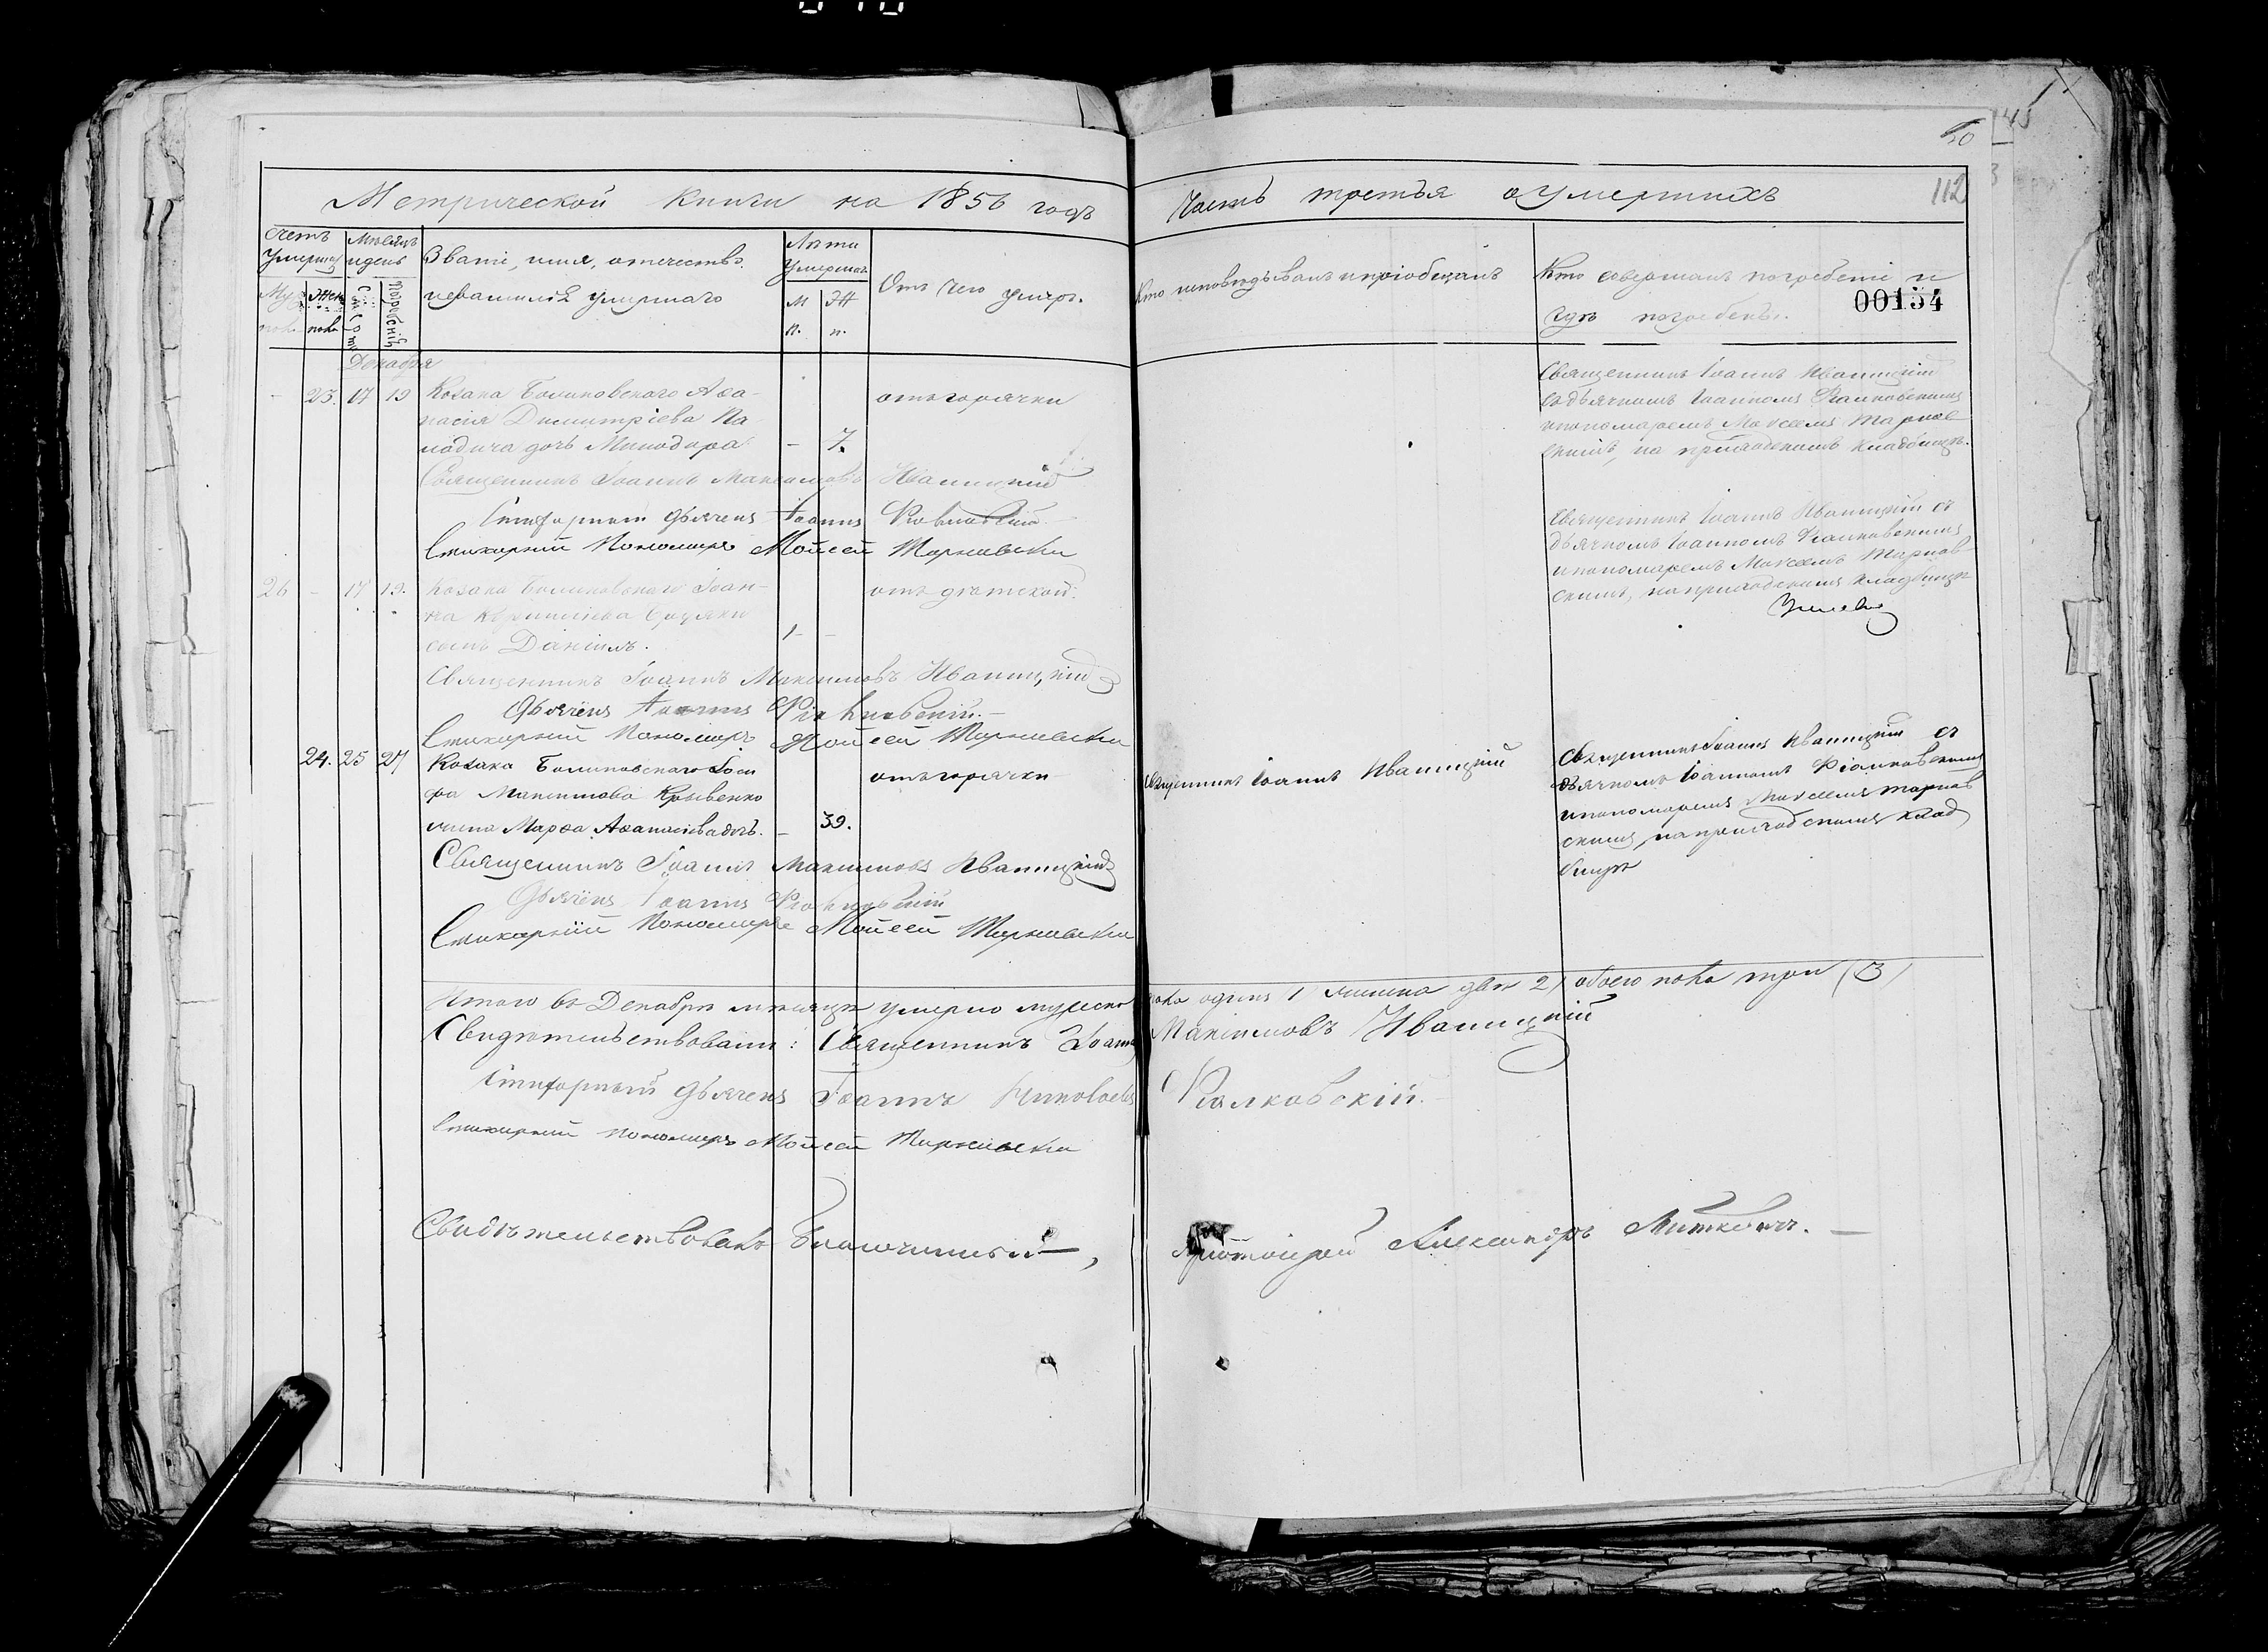 20
112
Метрической Книги на 1856 годъ
Часть третья о умершихъ
Счетъ умершихъ
Мѣсяцъ и день
Званіе, имя, отечество
и фамилія умершаго
Лѣта умершаго
Отъ чего умеръ.
Кто исповѣдывалъ и пріобщалъ
Кто совершалъ погребеніе и
гдѣ погребены.
00134
Муж. пола
Жен. пола
Смерти
Погребенія
М п.
Ж п.
Декабря
- 23. 17 19 Козака Аѳа-
насія Димитріева
дочь Минодора - 7.
отъ горячки
Священникъ Іоаннъ Иваницкій
съ дьячкомъ Іоанномъ Фіалковскимъ
и пономаремъ Моѵсеемъ Тарнов-
скимъ, на приходскомъ кладбищѣ.
Священникъ Іоаннъ Максимовъ Иваницкій
Стихарный Дьячекъ Іоаннъ Фіалковскій
Стихарний Пономарь Мойсей Тарнавски
26 - 17 19. Козака Іоан-
на
сынъ Даніилъ. 1 -
отъ дѣтской.
Священникъ Іоаннъ Иваницкій съ
дьячкомъ Іоанномъ Фіалковскимъ
и пономаремъ Моѵсеемъ Тарнов-
скимъ, на приходскомъ кладбищѣ
Священникъ Іоаннъ Максимовъ Иваницкій
Дьячекъ Іоаннъ Фіалковскій.
Стихарний Пономарь Мойсей Тарнавски
24. 25 27 Козака Іоси
фа Максимова Кривенко
жена Марѳа Аѳанасіева дочь. - 39.
отъ горячки
Священникъ Іоаннъ Иваницкій
Священникъ Іоаннъ Иваницкій съ
дьячкомъ Іоанномъ Фіалковскимъ
и пономаремъ Моѵсеемъ Тарнов
скимъ, на приходскомъ клад
бищѣ
Священникъ Іоаннъ Максимовъ Иваницкій
Дьячекъ Іоаннъ Фіалковскій
Стихарний Пономарь Мойсей Тарнавски
Итого въ Декабрѣ мѣсяцѣ умерло мужеска пола одинъ 1 женска двѣ 2) обоего пола три (3)
Свидѣтельствовали: Священникъ Іоаннъ Максимовъ Иваницкій
Стихарный Дьячекъ Іоаннъ Николаевъ Фіалковскій.
Стихарний пономарь Мойсей Тарнавски
Свидѣтельствовалъ Благочинный, Протоіерей Александръ Миткевичъ.